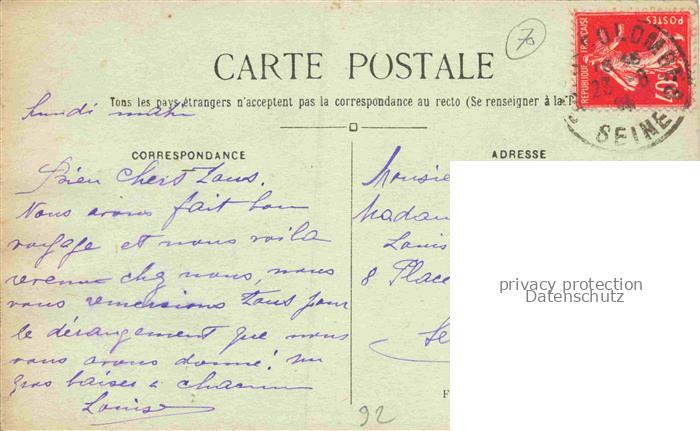 70
CARTE POSTALE
POSTES
REPUBLIQUE FRANÇAISE
COLOMBES
SEINE
lundi matin
Tous les pays étrangers n'acceptent pas la correspondance au recto (Se renseigner à la P
CORRESPONDANCE
Bien chers tous.
Nous avons fait bon
voyage et nous voila
revenue chez nous, nous
vous remercions tous pour
le dérangement que nous
vous avons donné! un
gros baises a chacun
Louise
ADRESSE
Monsie
Madam
Louis
8 Place
privacy protection
Datenschutz
F
92